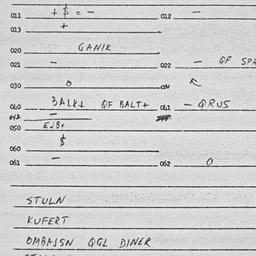 011 + $ = - 012 -
013 +
020 GANIK
021 - 022 - QF SPA
030 0 031
040 BALK+ QF BALT+ 041 - QRUS
042 -
050 EJB+
$
060
061 - 062 0
STULN
KUFERT
OMBAJSN QGL DINER